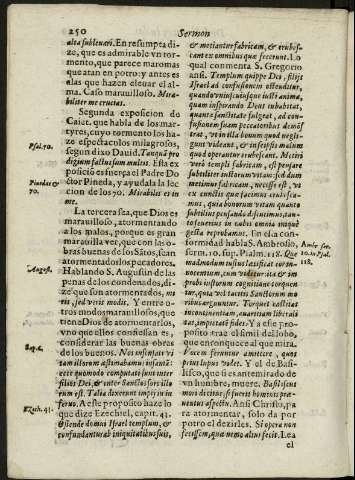 250
Sermon
alta subleuari. En resumpta di-
ze, que es admirable vn tor-
mento, que parece maromas
que atan en potro: y antes es
alas que hazen eleuar el al-
ma. Caso marauilloso. Mira-
biliter me crucias.
Segunda exposicion de
Caiet. que habla de los mar-
tyres, cuyo tormento los ha-
ze espectaculos milagrosos,
segun dixo Dauid. Tanquã pro
digium factus sum multis. Esta ex-
posiciõ esfuerça el Padre Do
ctor Pineda, y ayudala la lec
cion de los 70. Mirabilis es in
me.
La tercera sea, que Dios es
marauilloso, atormentando
a los malos, porque es gran
marauilla ver, que con las o-
bras buenas de los Sãtos, sean
atormentados los pecadores.
Hablando S. Augustin de las
penas de los condenados, di-
ze que son atormentados, mi
ris, sed veris modis. Y entre o-
tros modos marauillosos, que
tiene Dios de atormentarlos,
vno que ellos confiessan es,
considerar las buenas obras
de los buenos. Nos insensati vi
tam illorum æstimabamus insaniã:
ecce quomodo computati sunt inter
filios Dei, & inter Sanctos sors illo
rum est. Talia dixerunt impij in in
ferno. A este proposito haze lo
que dize Ezechiel, capit. 43.
ostende domui Israel templum, &
confundantur ab iniquitatibus suis,
Psal. 70.
Pineda &
70.
August.
Sap. 5.
Ezech. 43.
& metiantur fabricam, & erubes-
cant ex omnibus quæ fecerunt. Lo
qual commenta S. Gregorio
ansi. Templum quippe Dei, filijs
Israel ad confusionem ostenditur,
quando vniuscuiusque iusti anima,
quam inspirando Deus inhabitat,
quanta sanctitate fulgeat, ad con-
fusionem suam peccatoribus demõs
tratur, vt in illa bonum quod negli-
gunt videant, & in seipsis malum
quod operantur erubescant. Metiri
verò templi fabricam, est pensare
subtiliter iustorum vitam: sed dum
metimur fabricam, necesse est, vt
ex cunctis quæ facimus erubesca-
mus, quia bonorum vitam quanto
subtilius pensando discutimus, tan-
to seuerius in nobis omnia iniquè
gesta reprobamus. En esta con-
formidad habla S. Ambrosio,
serm. 10. sup. Psalm. 118. Que
madmodum iustos lætificat cor in-
nocentum, cum videtur ita &
probi iustorum cognitione torquen
tur, quia vel tacitis Sanctorum mo
ribus arguuntur. Torquet casti-
tas incontinentem, auarum liberali
tas, impietatis fides. Y a este pro-
posito trae el simil del lobo,
que enronquece al que mira.
Vocem feruntur amittere, quos
prius lupus videt. Y el de Basi-
lisco, que si es antemirado de
vn hombre, muere. Basiliscus
mori dicitur si fuerit hominis præ-
uentus aspectu. Ansi Christo, pa
ra atormentar, solo da por
potro el dezirles. Si opera non
fecissem, quæ nemo alius fecit. Lea
el
Ambr. ser.
10. in Psal.
118.